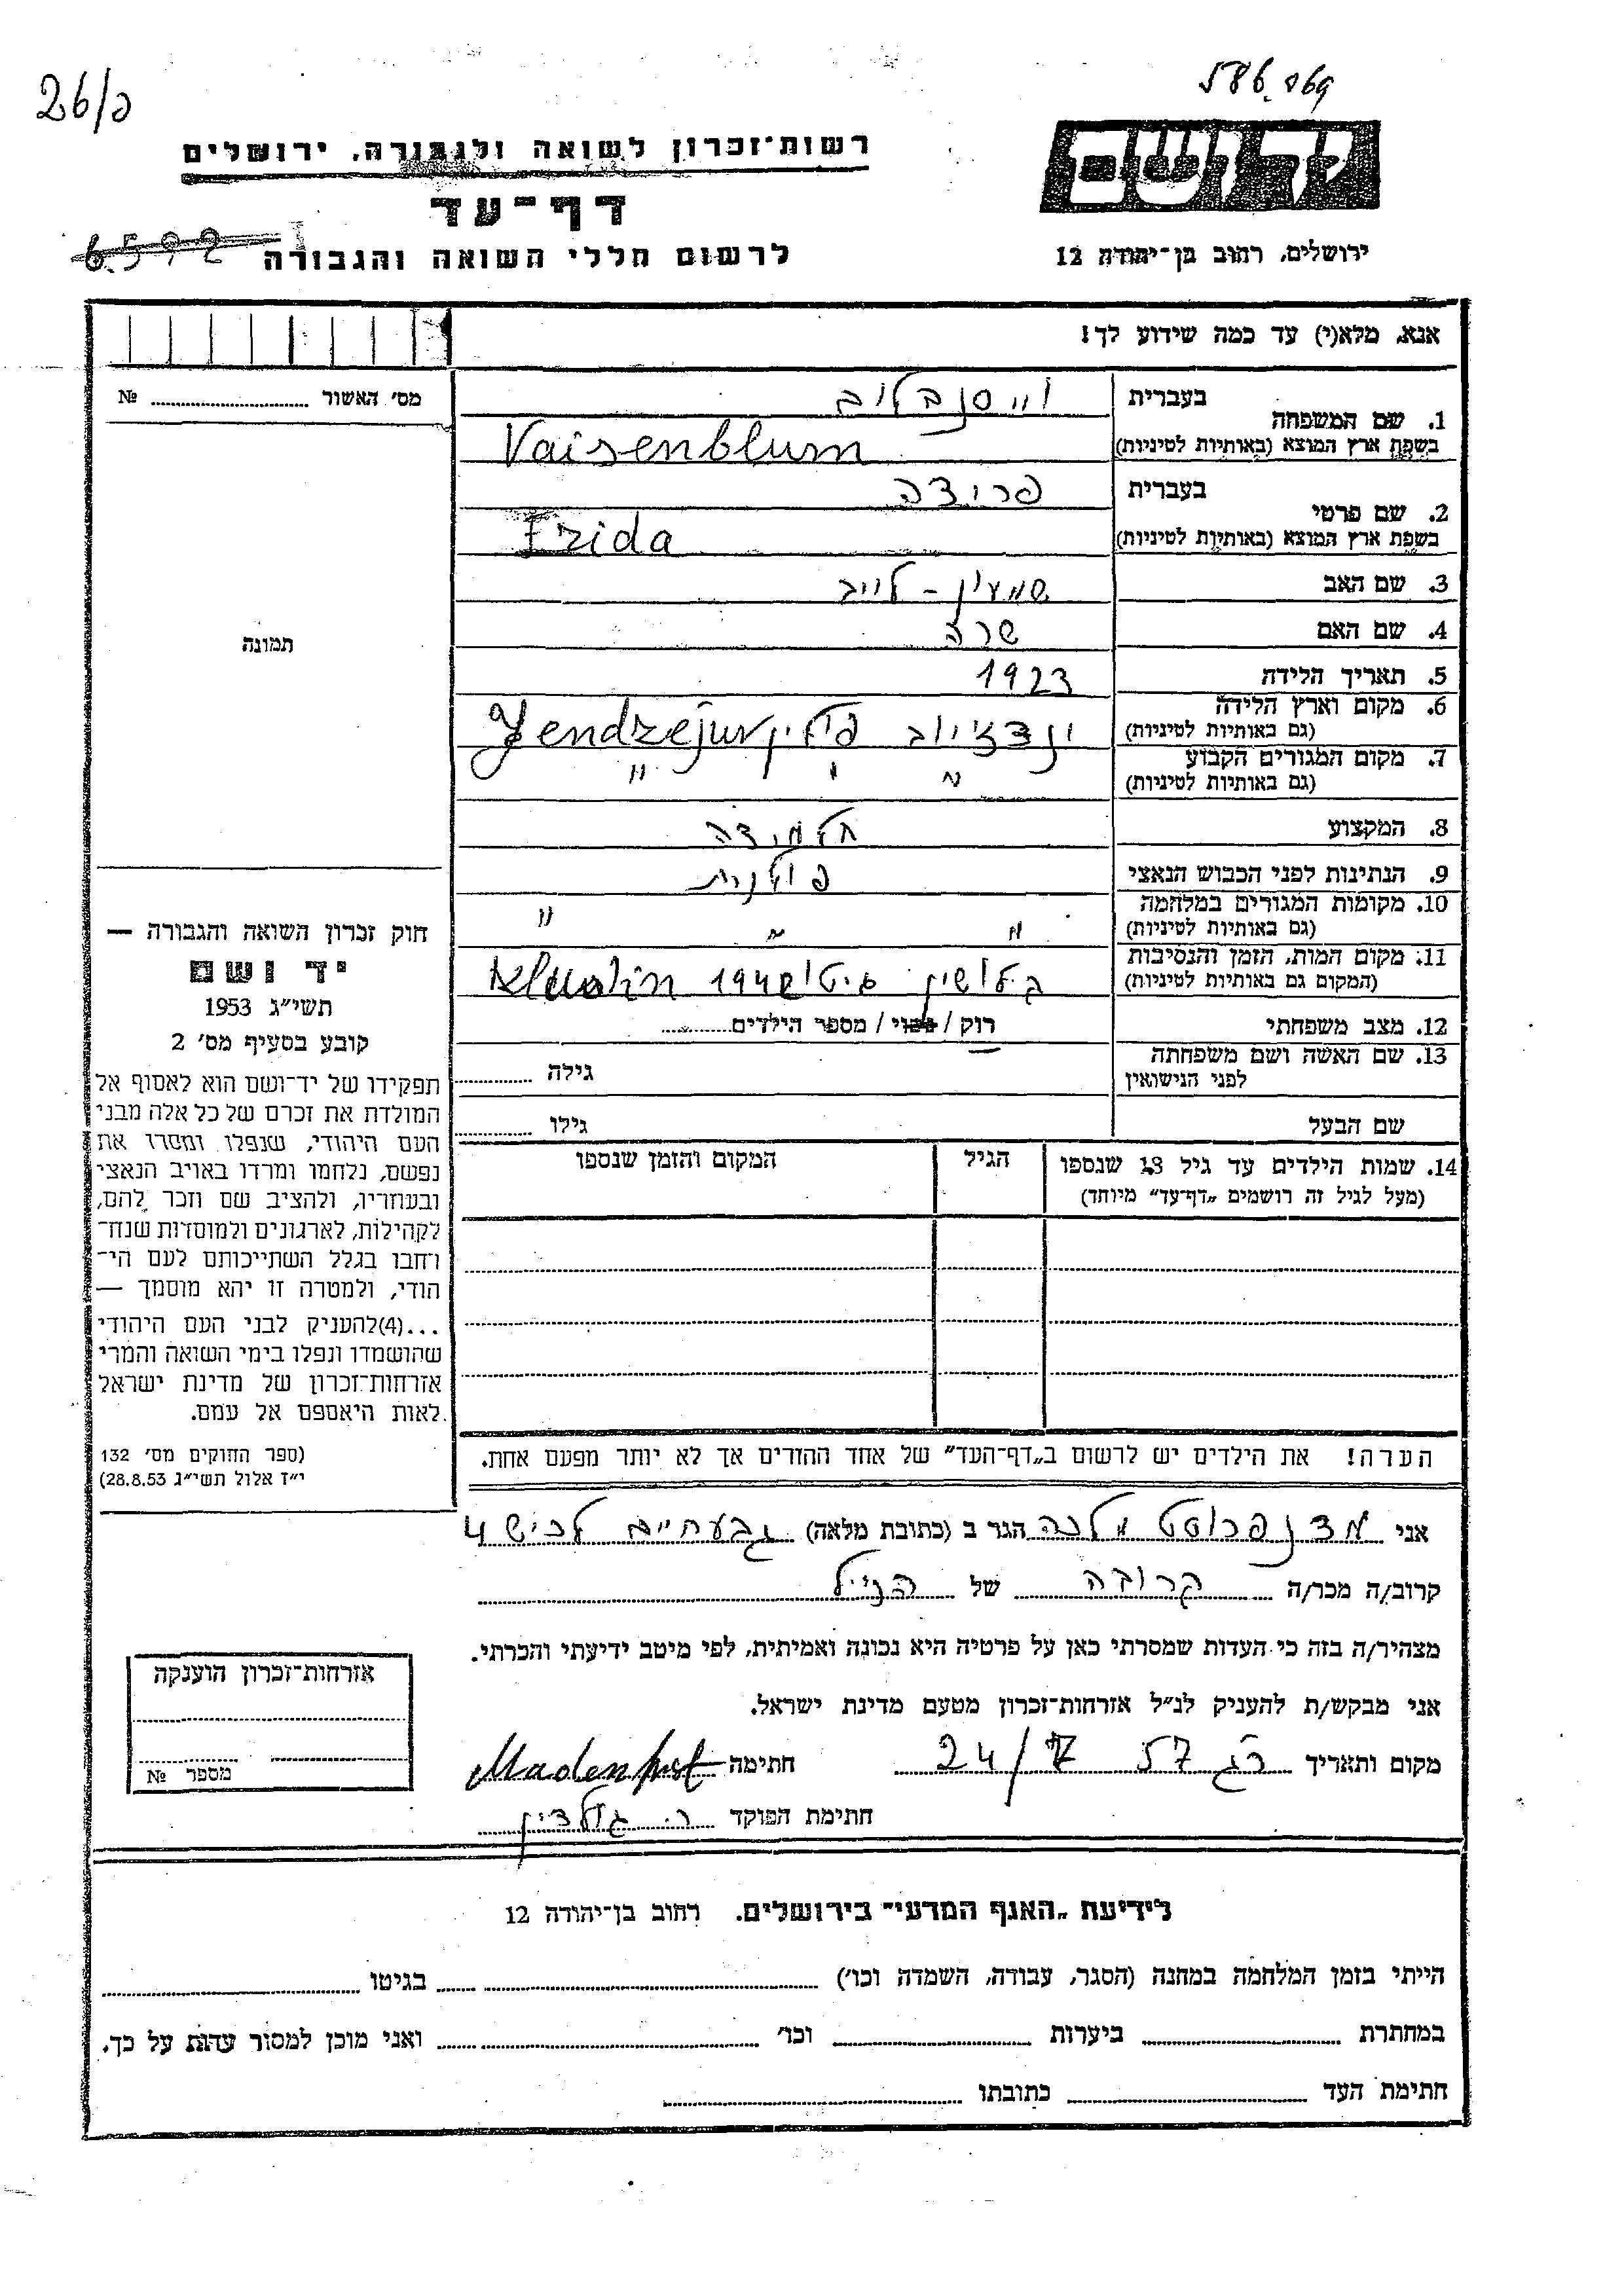 586.069
26/כ
יד ושם
רשות־זכרון לשואה ולגבורה, ירושלים
דף־עד
לרשום חללי השואה והגבורה
6592
ירושלים, רחוב בן־יהודה 12
אנא, מלא(י) עד כמה שידוע לך!
מס' האשור № 
1. שם המשפחה בעברית
וייסנבלום
בשפת ארץ המוצא (באותיות לטיניות)
Vaisenblum
2. שם פרטי בעברית
פרידה
בשפת ארץ המוצא (באותיות לטיניות)
Frida
3. שם האב שמעון - לייב
4. שם האם שרה
תמונה
5. תאריך הלידה 1923
6. מקום וארץ הלידה
(גם באותיות לטיניות)
ינדז'יוב פולין Yendzejuv
7. מקום המגורים הקבוע
(גם באותיות לטיניות)
" " "
8. המקצוע תלמידה
9. הנתינות לפני הכבוש הנאצי פולנית
10. מקומות המגורים במלחמה
(גם באותיות לטיניות)
" " "
11. מקום המות, הזמן והנסיבות
(המקום גם באותיות לטיניות)
גיטו 194
12. מצב משפחתי רוק / נשוי / מספר הילדים
13. שם האשה ושם משפחתה
לפני הנישואין
גילה
שם הבעל גילו
14. שמות הילדים עד גיל 18 שנספו הגיל המקום והזמן שנספו
(מעל לגיל זה רושמים „דף־עד" מיוחד)
חוק זכרון השואה והגבורה —
יד ושם
תשי"ג 1953
קובע בסעיף מס' 2
תפקידו של יד־ושם הוא לאסוף אל
המולדת את זכרם של כל אלה מבני
העם היהודי, שנפלו ומסרו את
נפשם, נלחמו ומרדו באויב הנאצי
ובעוזריו, ולהציב שם וזכר להם,
לקהילות, לארגונים ולמוסדות שנח־
רחבו בגלל השתייכותם לעם הי־
הודי, ולמטרה זו יהא מוסמך —
...(4)להעניק לבני העם היהודי
שהושמדו ונפלו בימי השואה והמרי
אזרחות־זכרון של מדינת ישראל
לאות היאספם אל עמם.
(ספר החוקים מס' 132
י"ז אלול תשי"ג 28.8.53)
הערה! את הילדים יש לרשום ב„דף־העד" של אחד ההורים אך לא יותר מפעם אחת.
אני מדנפרוסט מלכה הגר ב (כתובת מלאה) גבעתיים לכיש 4
קרוב/ה מכר/ה קרובה של הנ"ל
מצהיר/ה בזה כי העדות שמסרתי כאן על פרטיה היא נכונה ואמיתית, לפי מיטב ידיעתי והכרתי.
אני מבקש/ת להעניק לנ"ל אזרחות־זכרון מטעם מדינת ישראל.
מקום ותאריך רג 57 24/7 חתימה Madenfrost
חתימת הפוקד ר. גולדין
אזרחות־זכרון הוענקה
מספר №
לידיעת „האגף המדעי" בירושלים, רחוב בן־יהודה 12
הייתי בזמן המלחמה במחנה (הסגר, עבודה, השמדה וכו') בגיטו
במחתרת ביערות וכו' ואני מוכן למסור עדות על כך.
חתימת העד כתובתו